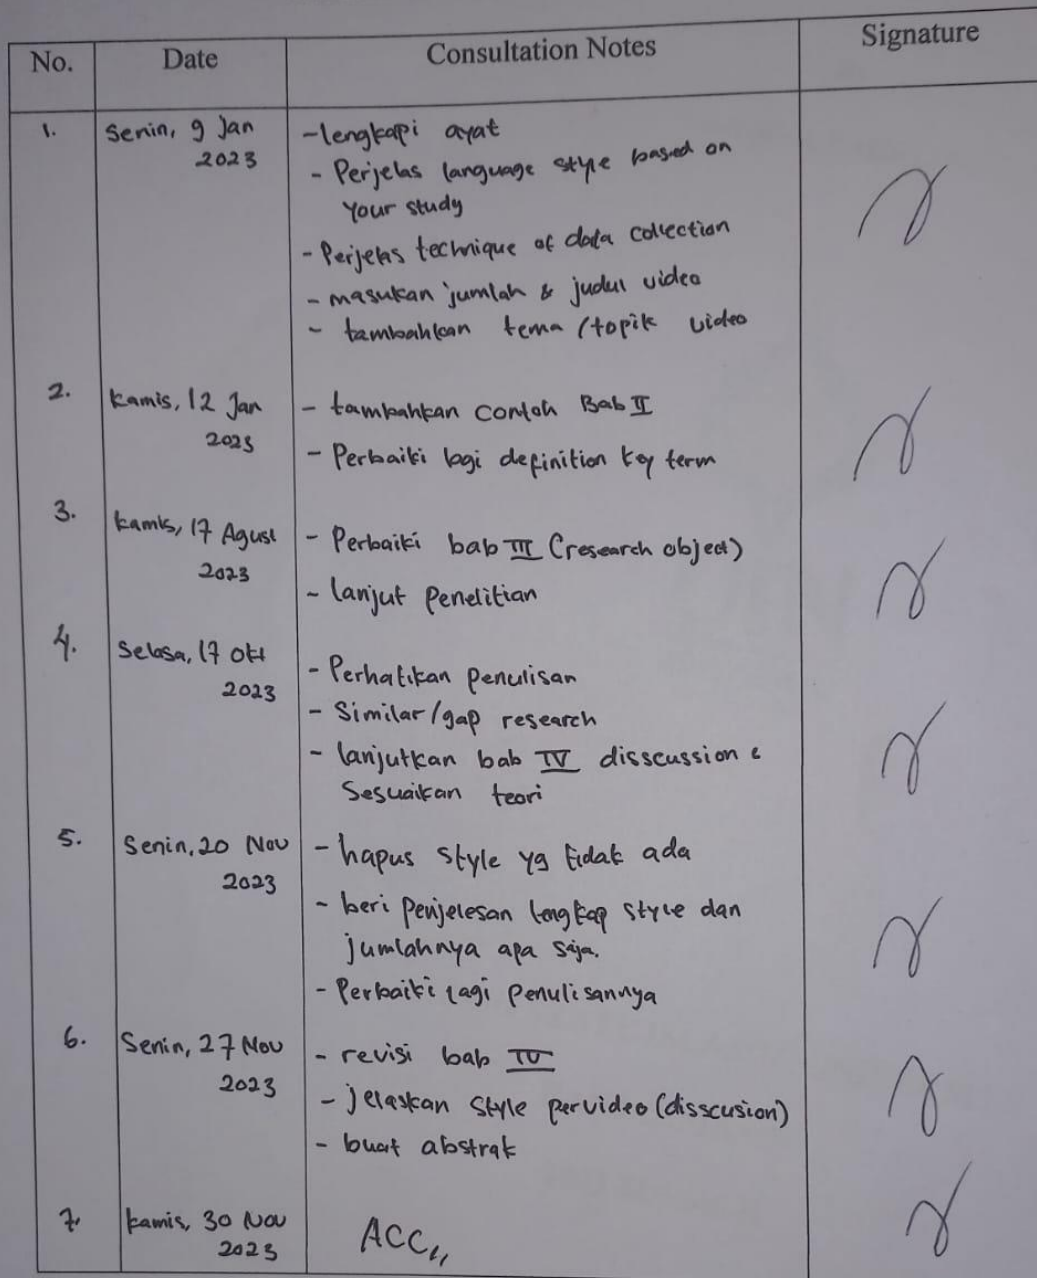 No. Date Consultation Notes Signature
1. Senin, 9 Jan - lengkapi ayat
2023 - Perjelas language style based on
your study
- Perjelas technique of data collection
- masukan jumlah & judul video
- tambahkan tema /topik video
2. kamis, 12 Jan - tambahkan contoh Bab II
2023 - Perbaiki lagi definition key term
3. kamis, 17 Agust - Perbaiki bab III (research object)
2023 - lanjut penelitian
4. Selasa, 17 Okt - Perhatikan penulisan
2023 - Similar/gap research
- lanjutkan bab IV disscussion &
Sesuaikan teori
5. Senin, 20 Nov - hapus style yg tidak ada
2023 - beri penjelesan lengkap style dan
jumlahnya apa saja.
- Perbaiki lagi penulisannya
6. Senin, 27 Nov - revisi bab IV
2023 - jelaskan style pervideo (disscusion)
- buat abstrak
7. kamis, 30 Nov ACC
2023